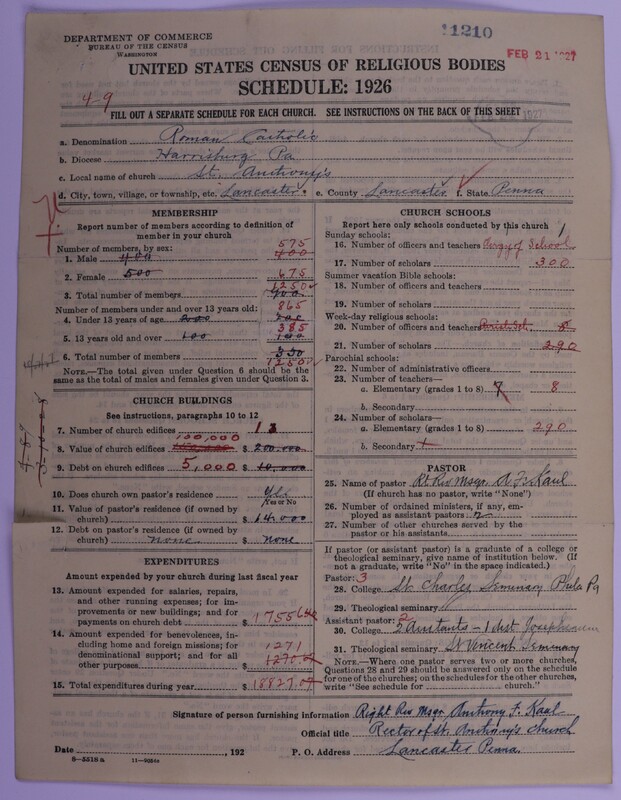 DEPARTMENT OF COMMERCE
BUREAU OF THE CENSUS
WASHINGTON
11210
FEB 21 1927
UNITED STATES CENSUS OF RELIGIOUS BODIES
SCHEDULE: 1926
4-9
FILL OUT A SEPARATE SCHEDULE FOR EACH CHURCH. SEE INSTRUCTIONS ON THE BACK OF THIS SHEET
a. Denomination Roman Catholic
b. Diocese Harrisburg Pa
c. Local name of church St. Anthony's
d. City, town, village, or township, etc. Lancaster e. County Lancaster f. State Penna
MEMBERSHIP
Report number of members according to definition of member in your church
Number of members, by sex:
575
1. Male 400 400
2. Female 500 675
1250
3. Total number of members 900
Number of members under and over 13 years old:
865
4. Under 13 years of age
385
5. 13 years old and over 100 100
6. Total number of members 350
1250
NOTE.—The total given under Question 6 should be
same as the total of males and females given under Question 3.
CHURCH BUILDINGS
See instructions, paragraphs 10 to 12
7. Number of church edifices 1
100,000
8. Value of church edifices $ 200,000
9. Debt on church edifices 5,000 $ 10,000
10. Does church own pastor's residence Yes
Yes or No
11. Value of pastor's residence (if owned by
church) $ 14,000
12. Debt on pastor's residence (if owned by
church) none $ none
EXPENDITURES
Amount expended by your church during last fiscal year
13. Amount expended for salaries, repairs,
and other running expenses; for im-
provements or new buildings; and for
payments on church debt $ 17556
14. Amount expended for benevolences, in-
cluding home and foreign missions; for
denominational support; and for all
other purposes $ 1271
15. Total expenditures during year $ 18827.07
CHURCH SCHOOLS
Report here only schools conducted by this church
Sunday schools:
16. Number of officers and teachers
17. Number of scholars 300
Summer vacation Bible schools:
18. Number of officers and teachers
19. Number of scholars
Week-day religious schools:
20. Number of officers and teachers
21. Number of scholars 290
Parochial schools:
22. Number of administrative officers
23. Number of teachers—
a. Elementary (grades 1 to 8) 7 8
b. Secondary
24. Number of scholars—
a. Elementary (grades 1 to 8) 290
b. Secondary
PASTOR
25. Name of pastor Rt Rev Msgr A F Kaul
(If church has no pastor, write "None")
26. Number of ordained ministers, if any, em-
ployed as assistant pastors 2
27. Number of other churches served by the
pastor or his assistants
If pastor (or assistant pastor) is a graduate of a college or
theological seminary, give name of institution below. (If
not a graduate, write "No" in the space indicated.)
Pastor: 3
28. College St. Charles Seminary Phila Pa
29. Theological seminary
Assistant pastor: 2
30. College 2 Assistants - 1 dist Josephinum
31. Theological seminary St Vincent Seminary
NOTE.—Where one pastor serves two or more churches,
Questions 28 and 29 should be answered only on the schedule
for one of the churches; on the schedules for the other churches,
write "See schedule for church."
Signature of person furnishing information Right Rev Msgr Anthony F. Kaul
Official title Rector of St. Anthony's Church
Date , 192 P. O. Address Lancaster Penna.
8—5518 a 11—9054a